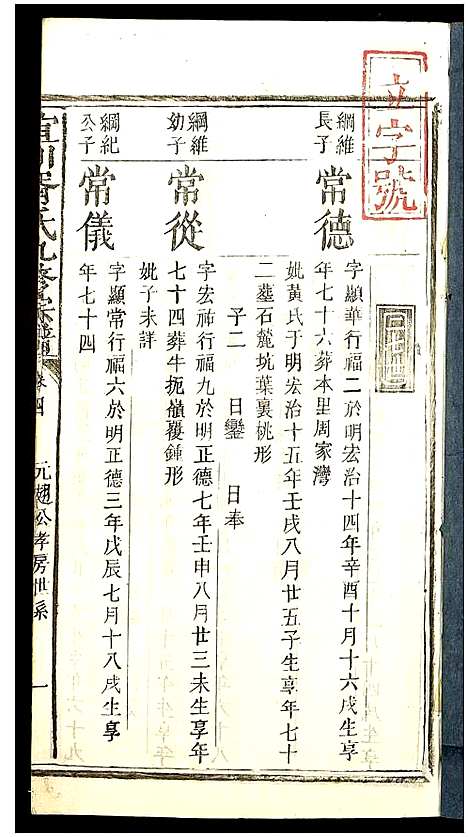 立字號
綱維
長子
常德
字顯華行福二於明宏治十四年辛酉十月十六戌生享
年七十六葬本里周家灣
妣黃氏于明宏治十五年壬戌八月廿五子生享年七十
二墓石麓坑葉裏桃形
子二 日鑾 日奉
綱維
幼子
常從
字宏祐行福九於明正德七年壬申八月廿三未生享年
七十四葬牛扼嶺覆鍾形
妣子未詳
綱紀
公子
常儀
字顯常行福六於明正德三年戊辰七月十八戌生享
年七十四
氏九修宗譜
卷四
元趙公孝房世系
一